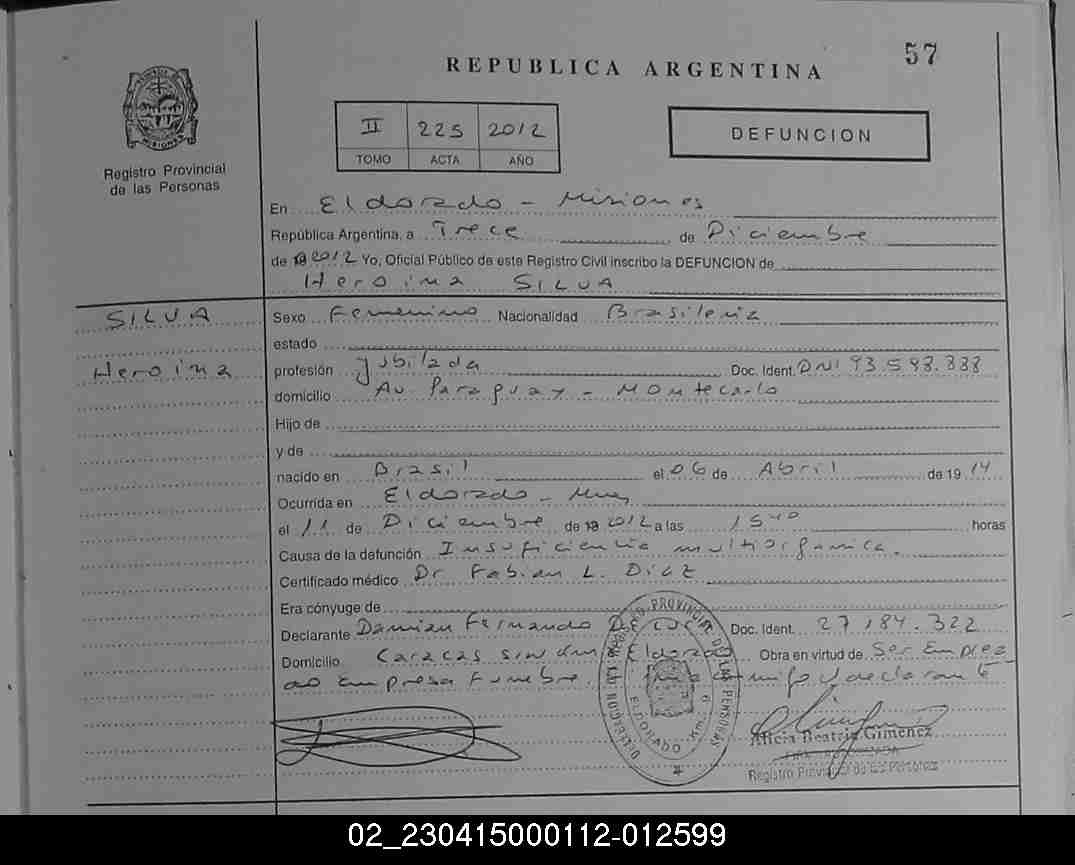 57
REPUBLICA ARGENTINA
II 225 2012
TOMO ACTA AÑO
DEFUNCION
MISIONES
Registro Provincial
de las Personas
En Eldorado - Misiones
República Argentina, a Trece de Diciembre
de 19 2012 Yo, Oficial Público de este Registro Civil inscribo la DEFUNCION de
Heroina SILVA
SILVA
Heroina
Sexo Femenino Nacionalidad Brasileña
estado
profesión Jubilada Doc. Ident. DNI 93.598.338
domicilio Av. Paraguay - Montecarlo
Hijo de
y de
nacido en Brasil el 06 de Abril de 19 14
Ocurrida en Eldorado - Mnes
el 11 de Diciembre de 19 2012 a las 15 40 horas
Causa de la defunción Insuficiencia multiorganica.
Certificado médico Dr Fabian L. Diaz
Era cónyuge de
Declarante Damian Fernando Doc. Ident. 27.184.322
Domicilio Caracas sin Eldorado Obra en virtud de Ser Emplea
do Empresa Funebre. conmigo y declarante
DIRECCION REGISTRO PROVINCIAL DE LAS PERSONAS
ELDORADO Km. 9
Alicia Beatriz Gimenez
Registro Provincial de las Personas
02_230415000112-012599